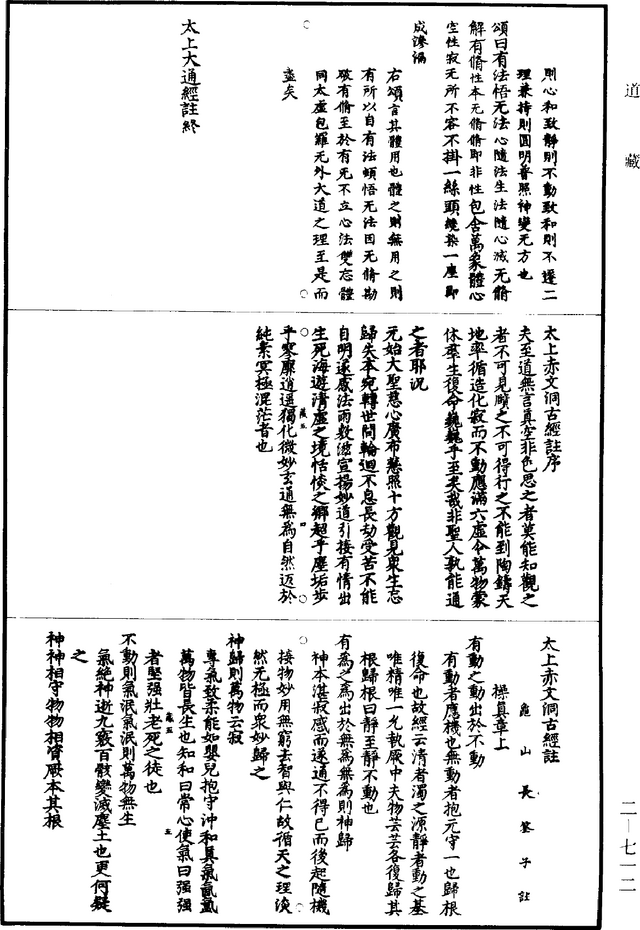 道藏
則心和致靜則不動致和則不遷二
理兼持則圓明普照神變无方也
頌曰有法悟无法心隨法生法隨心滅无脩
解有脩性本无脩脩即非性包含萬象體心
空性寂无所不容不掛一絲頭纔染一塵即
成滲漏
右頌言其體用也體之則無用之則
有所以自有法頓悟无法因无脩勘
破有脩至於有死不立心法雙忘體
同太虛包羅无外大道之理至是而
盡矣
太上大通經註終
太上赤文洞古經註序
夫至道無言真空非色思之者莫能知觀之
者不可見臏之不可得行之不能到陶鑄天
地率循造化寂而不動應滿六虛令萬物蒙
休羣生復命巍巍乎至矣哉非聖人孰能通
之者耶況
元始大聖慈心廣布慈照十方觀見衆生忘
歸失本宛轉世間輪迴不息長劫受苦不能
自明遂感法雨敷滋宣揚妙道引接有情出
生死海遊清虛之境恬惔之鄉超乎塵垢步
乎寥廓逍遥獨化微妙玄通無為自然迈於
純素冥極混茫者也
太上赤文洞古經註
龜山長筌子註
操真章上
有動之動出於不動
有動者應機也無動者抱元守一也歸根
復命也故經云清者濁之源靜者動之基
唯精唯一允執厥中夫物芸芸各復歸其
根歸根曰靜至靜不動也
有為之為出於無為無為則神歸
神本湛寂感而遂通不得已而後起隨機
接物妙用無窮去智與仁故循天之理淡
然无極而衆妙歸之
神歸則萬物云寂
專氣致柔能如嬰兒抱守沖和真氣氤氳
萬物皆長生也知和曰常心使氣曰强强
者堅强壯老死之徒也
不動則氣泯氣泯則萬物無生
氣絶神逝九竅百骸變滅塵土也更何疑
之
神神相守物物相資厥本其根
二—七一二